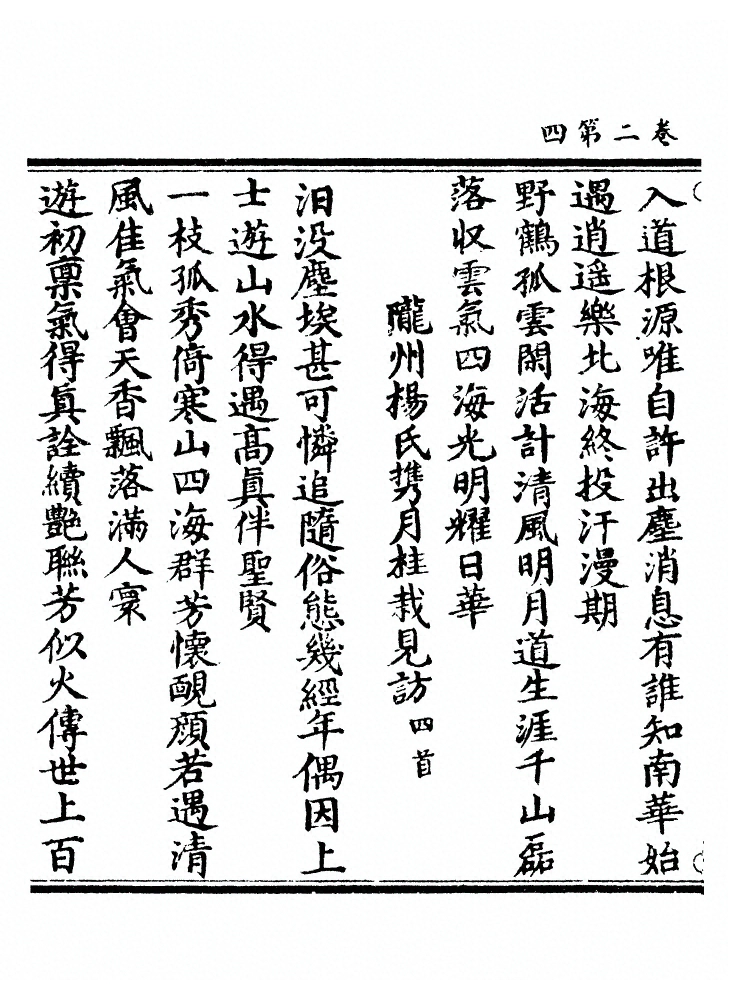 卷二第四
入道根源唯自許出塵消息有誰知南華始
遇逍遥樂北海終投汗漫期
野鶴孤雲閑活計清風明月道生涯千山磊
落收雲氣四海光明耀日華
隴州楊氏携月桂栽見訪四首
汨没塵埃甚可憐追隨俗態幾經年偶因上
士遊山水得遇髙眞伴聖賢
一枝孤秀倚寒山四海群芳懷靦顔若遇清
風佳氣會天香飄落滿人寰
遊初禀氣得眞詮續艷聯芳似火傳世上百